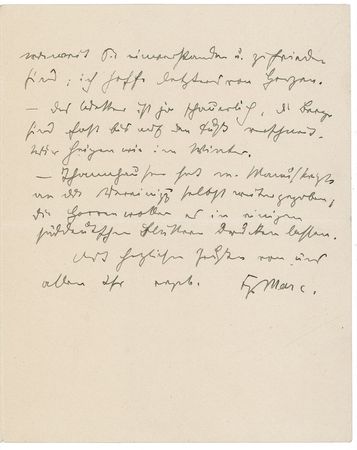 Sie einverstanden u. zufrieden
sind; ich hoffe letzteres von Herzen.
– das Wetter ist ja schauerlich, die Berge
sind fast bis auf den Fuß verschneit.
Wir heizen wie im Winter.
– Thannhauser hat m. Manuskript
an die Vereinigg selbst weitergegeben,
die Herren wollen es in einigen
süddeutschen Blättern drucken lassen.
Mit herzlichen Grüßen von uns
allen Ihr ergeb. Fz. Marc.